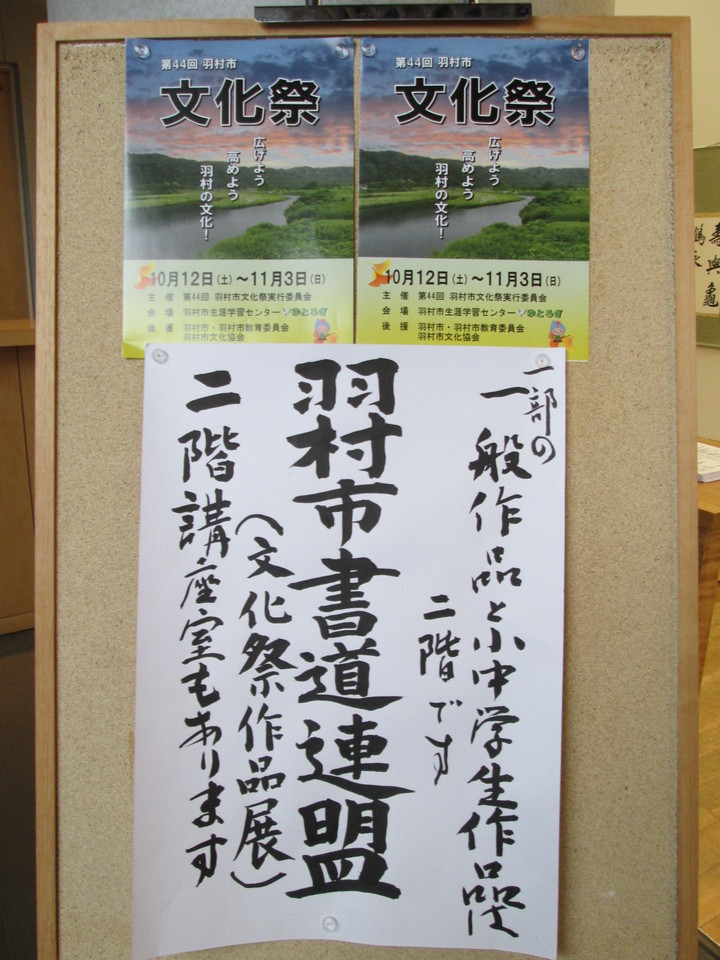 第44回 羽村市
文化祭
広げよう
高めよう
羽村の文化！
10月12日（土）～11月3日（日）
主 催 第44回 羽村市文化祭実行委員会
会 場 羽村市生涯学習センターゆとろぎ
後 援 羽村市・羽村市教育委員会
羽村市文化協会
第44回 羽村市
文化祭
広げよう
高めよう
羽村の文化！
10月12日（土）～11月3日（日）
主 催 第44回 羽村市文化祭実行委員会
会 場 羽村市生涯学習センターゆとろぎ
後 援 羽村市・羽村市教育委員会
羽村市文化協会
一部の
一般作品と小中学生作品は
二階です
羽村市書道連盟
（文化祭作品展）
二階講座室もあります